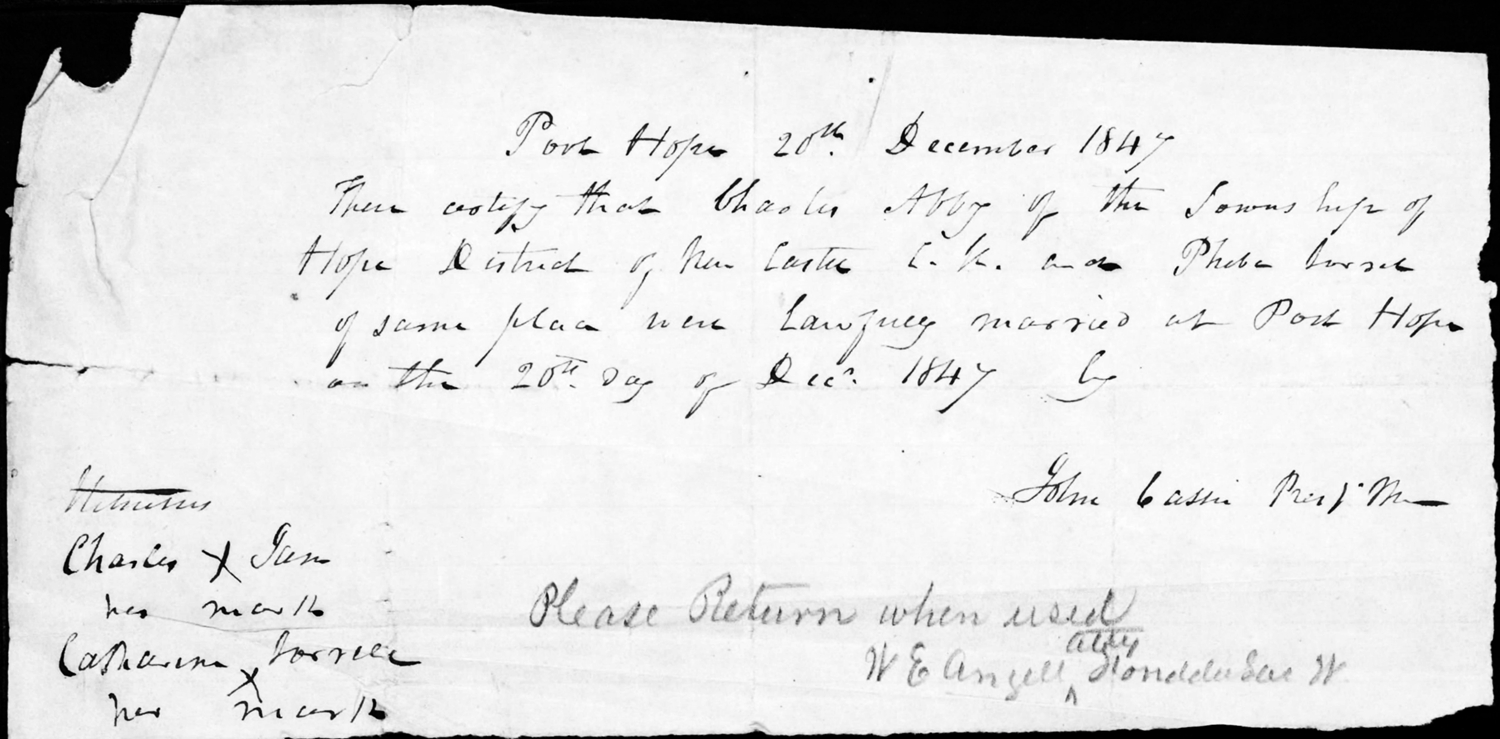 Port Hope 20th December 1847
These certify that Charles Abby of the Township of
Hope District of New Castle C. W. and Phebe Correll
of same place were Lawfully married at Port Hope
on the 20th Day of Decr. 1847 by
John Cassie Presb. Min
Witnesses
Charles X Jam
his mark
Catharine Correll
X
her mark
Please Return when used
W E Angell atty Fonddulac W